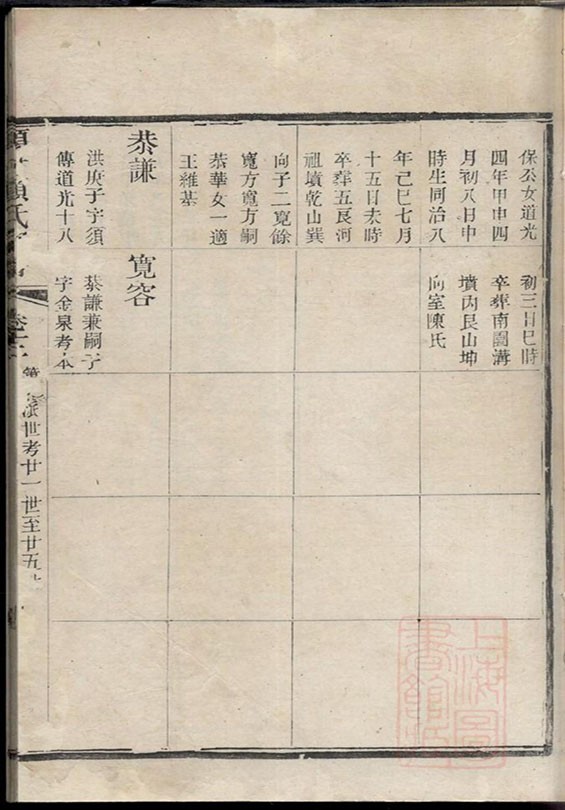 保公女道光
四年甲申四
月初八日中
時生同治八
年己巳七月
十五日未時
卒葬五艮河
祖墳乾山巽
向子二寬餘
寬方寬方嗣
恭華女一適
王維基
恭謙
洪庚子字須
傳道光十八
初三日巳時
卒葬南圍溝
墳内艮山坤
向室陳氏
寬容
恭謙兼嗣子
字金泉考本
世考廿一世至廿五
上海圖書館藏